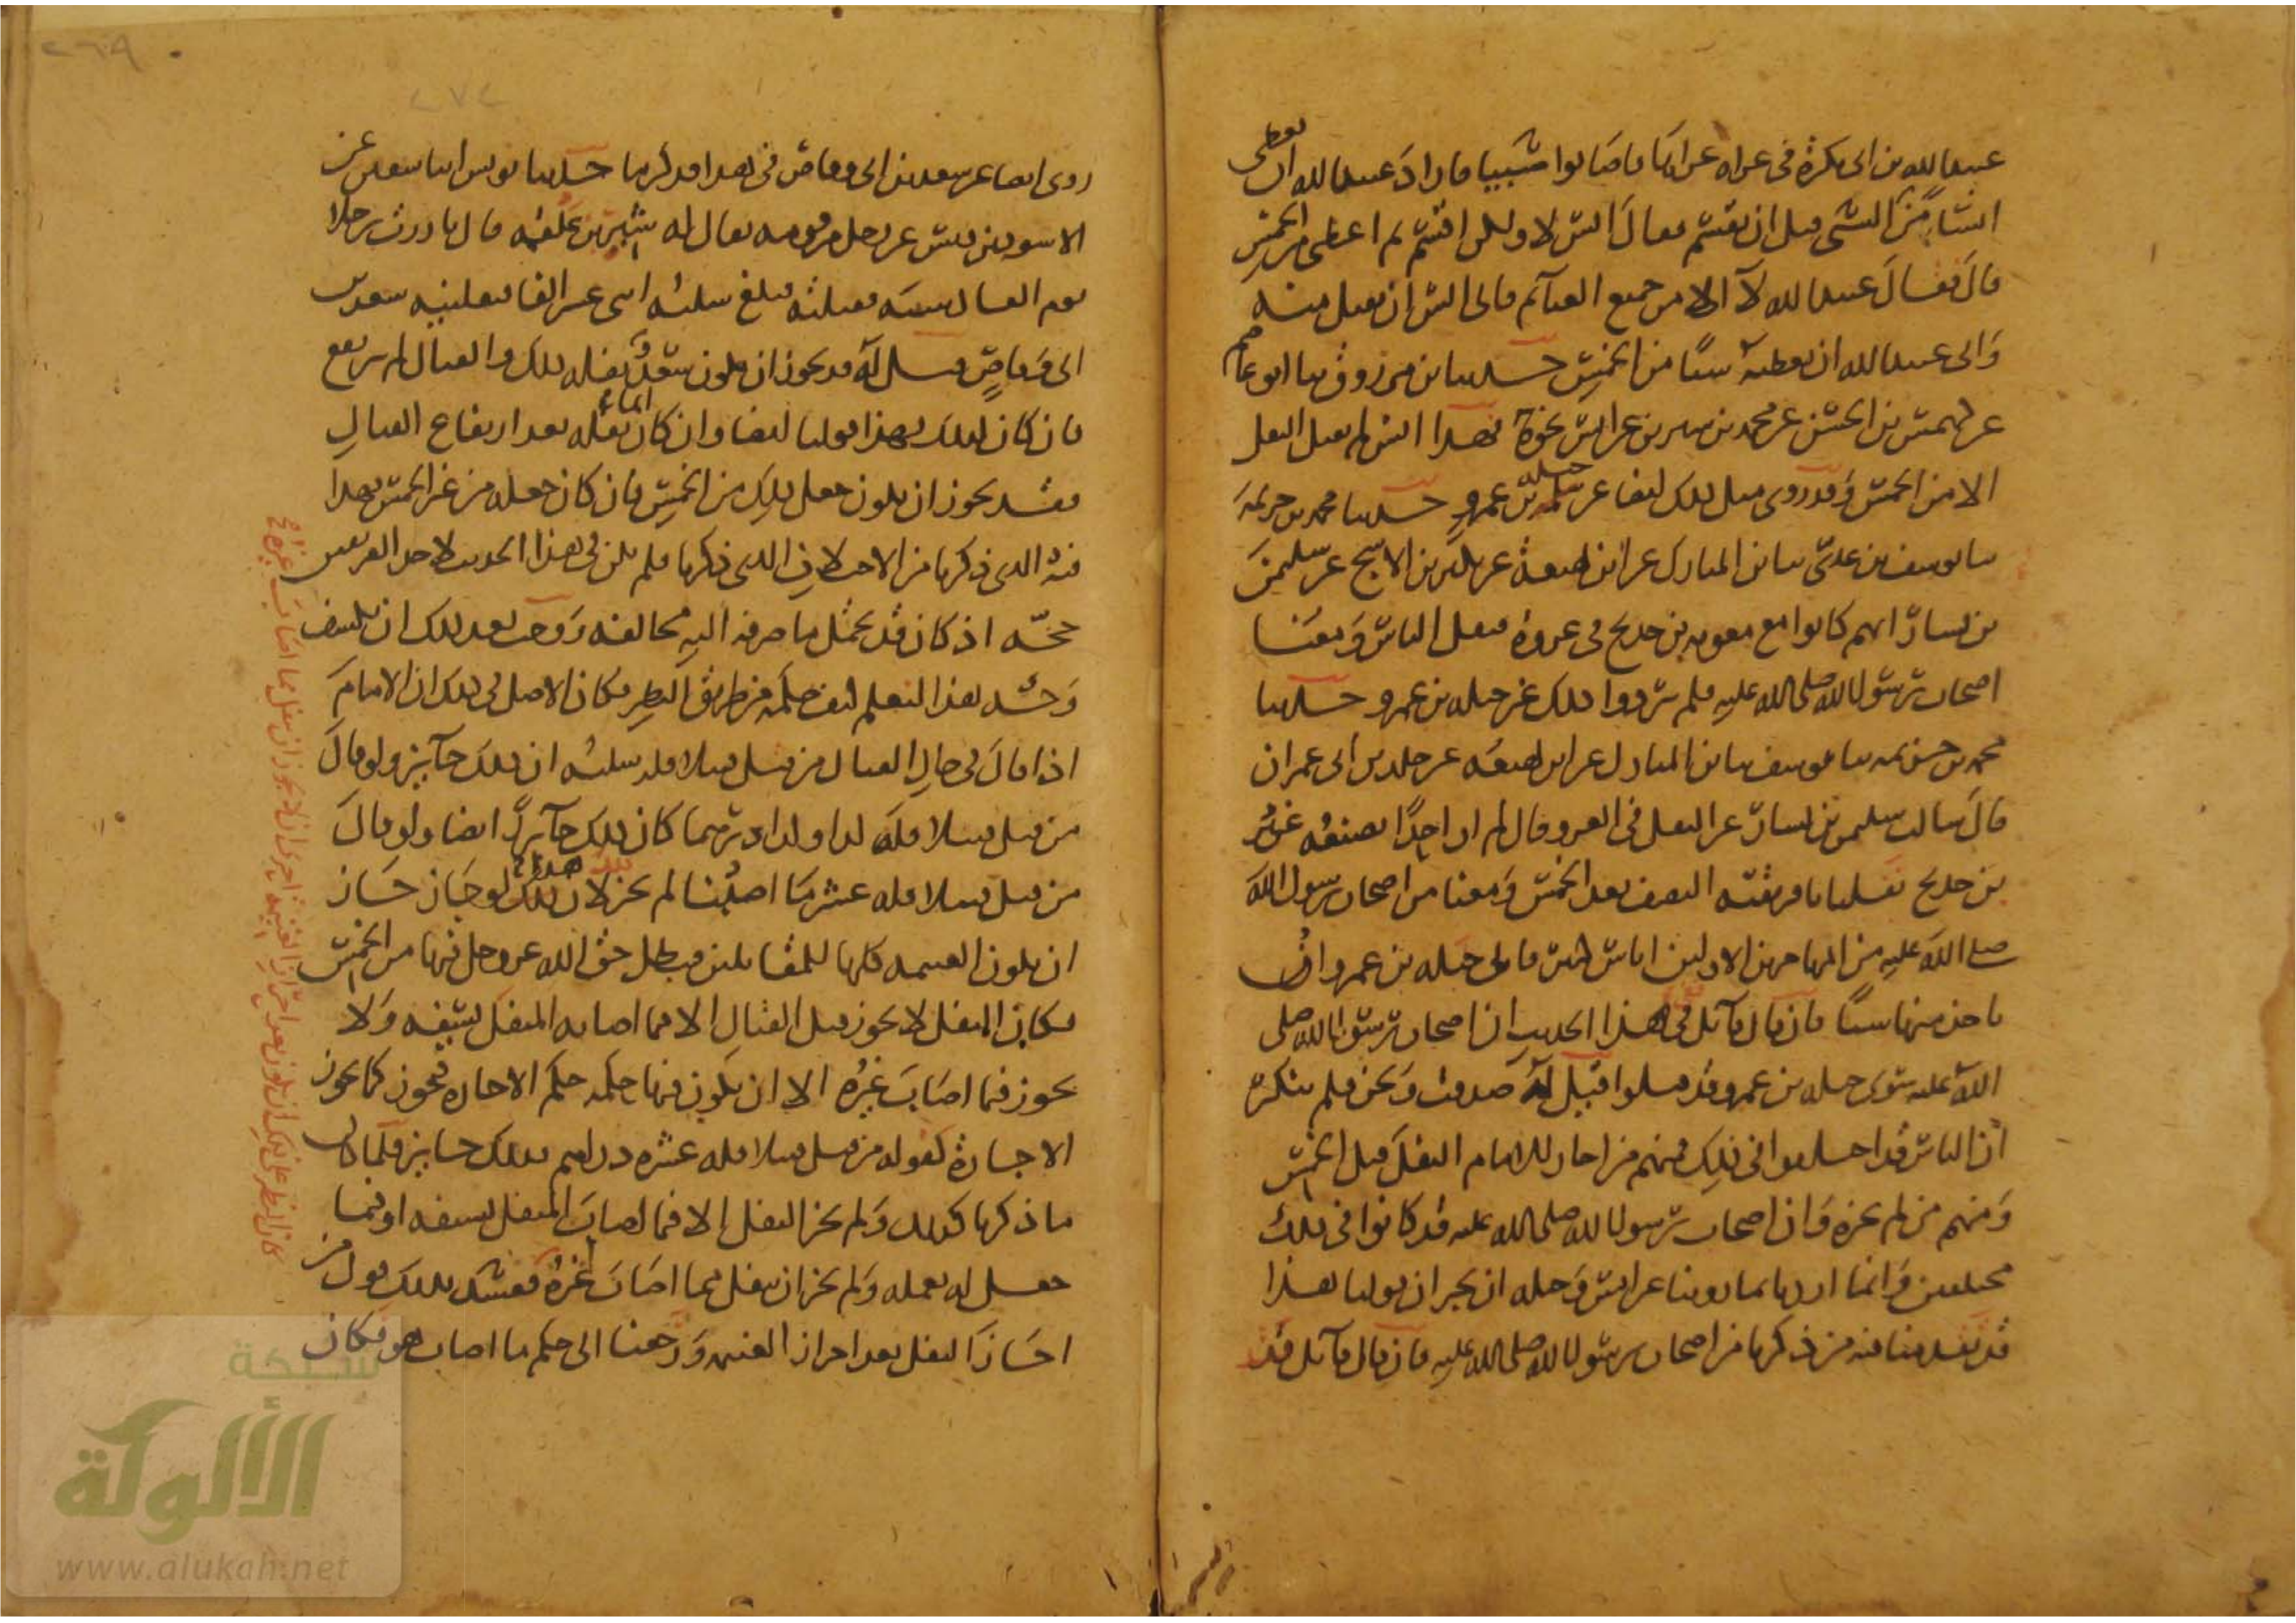 عبيد الله بن ابي بكرة في غزاة غزاها فاصابوا سبيا فاراد عبيد الله ان يعطي
انسا من السبي قبل ان يقسم فقال انس لا ولكن اقسم ثم اعطني من الخمس
قال فقال عبيد الله لا الا من جميع الغنائم فابى انس ان يقبل منه
وابى عبيد الله ان يعطيه شيئا من الخمس حدثنا ابن مرزوق ثنا ابو عاصم
عن كهمس بن الحسن عن محمد بن سيرين عن انس نحوه فهذا انس لم يقبل النفل
الا من الخمس وقد روي مثل ذلك ايضا عن جبلة بن عمرو حدثنا محمد بن خزيمة
ثنا يوسف بن عدي ثنا ابن المبارك عن ابن لهيعة عن بكير بن الاشج عن سليمن
بن يسار انهم كانوا مع معوية بن حديج في غزوة فنفل الناس ومعنا
اصحاب رسول الله صلى الله عليه فلم يردوا ذلك غير جبلة بن عمرو حدثنا
محمد بن خزيمة ثنا يوسف ثنا ابن المبارك عن ابن لهيعة عن خلد بن ابي عمران
قال سالت سليمن بن يسار عن النفل في الغزو فقال لم ار احدا يصنعه غير
بن حديج نفلنا بافريقية النصف بعد الخمس ومعنا من اصحاب رسول الله
صلى الله عليه من المهاجرين الاولين اناس كثير فابى جبلة بن عمرو ان
ياخذ منها شيئا فان قال قائل ففي هذا الحديث ان اصحاب رسول الله صلى
الله عليه سوى جبلة بن عمرو قد قبلوا قيل له صدقت ونحن فلم ننكر
ان الناس قد اختلفوا في ذلك فمنهم من اجاز للامام النفل قبل الخمس
ومنهم من لم يجزه وان اصحاب رسول الله صلى الله عليه قد كانوا في ذلك
مختلفين وانما اردنا بما روينا عن انس وجبلة ان نخبر ان قولنا هذا
قد تقدمنا فيه من ذكرنا من اصحاب رسول الله صلى الله عليه فان قال قائل فقد
٢٦٩
٢٧٢
روي ايضا عن سعد بن ابي وقاص في هذا فذكر ما حدثنا يونس انبا سفين عن
الاسود بن قيس عن رجل من قومه يقال له شبر بن علقمة قال بارزت رجلا
يوم القادسية فقتلته فبلغ سلبه اثني عشر الفا فنفلنيه سعد بن
ابي وقاص قيل له قد يجوز ان يكون سعد نفله ذلك والقتال لم يرتفع
فان كان كذلك فهذا قولنا ايضا وان كان انما نفله بعد ارتفاع القتال
فقد يجوز ان يكون جعل ذلك من الخمس فان كان جعله من غير الخمس فهذا
فيه الذي ذكرنا من الاختلاف الذي ذكرنا فلم يكن في هذا الحديث لاحد الفريقين
حجة اذ كان قد يحتمل ما صرفه اليه مخالفه ووجب بعد ذلك ان يكشف
وجه هذا لنعلم كيف حكمه من طريق النظر فكان الاصل في ذلك ان الامام
اذا قال في حال القتال من قتل قتيلا فله سلبه ان ذلك جائز ولو قال
من قتل قتيلا فله كذا وكذا درهما كان ذلك جائزا ايضا ولو قال
من قتل قتيلا فله عشر ما اصبنا لم يجز لان هذا لو جاز جاز
ان يكون الغنيمة كلها للمقاتلين فيبطل حق الله عز وجل فيها من الخمس
فكان النفل لا يجوز قبل القتال الا فيما اصابه المنفل بسيفه ولا
يجوز فيما اصاب غيره الا ان يكون فيما حكمه حكم الاجارة فيجوز كما يجوز
الاجارة كقوله من قتل قتيلا فله عشرة دراهم فذلك جائز فلما كان
ما ذكرنا كذلك ولم يجز النفل الا فيما اصاب المنفل بسيفه او فيما
جعل له بعمله ولم يجز ان ينفل مما اصاب غيره ففسد بذلك قول من
اجاز النفل بعد احراز الغنيمة ورجعنا الى حكم ما اصاب هو فكان
شبكة
الألوكة
www.alukah.net